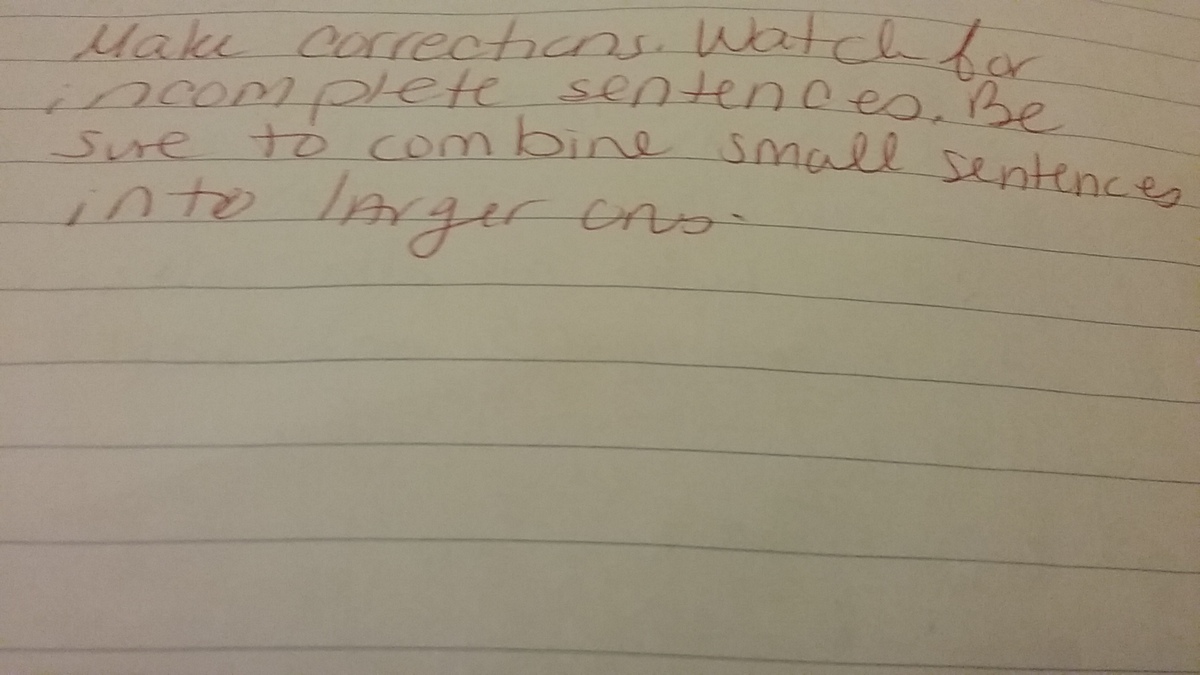 Make corrections. Watch for
incomplete sentences. Be
sure to combine small sentences
into larger ons.